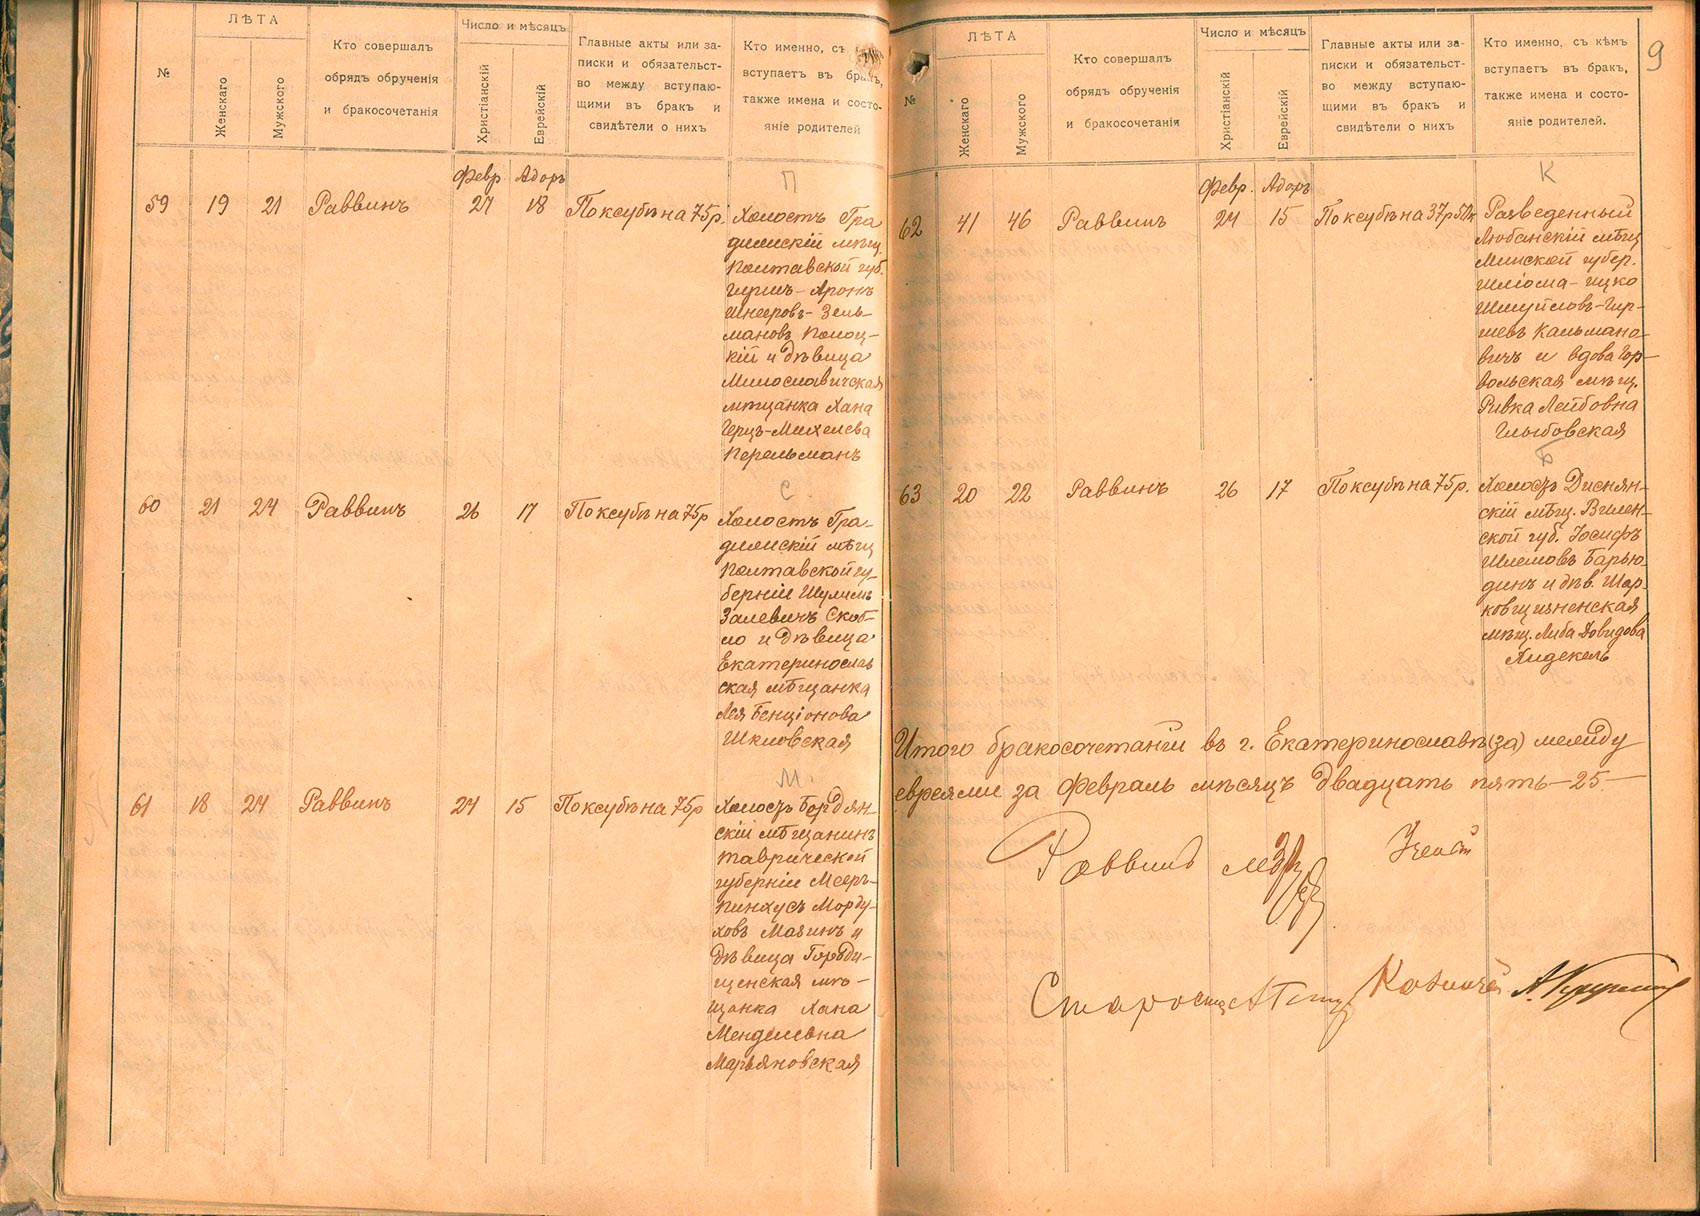 №
ЛѢТА
Женскаго
Мужского
Кто совершалъ
обрядъ обрученія
и бракосочетанія
Число и мѣсяцъ
Христіанскій
Еврейскій
Главные акты или за-
писки и обязательст-
во между вступаю-
щими въ бракъ и
свидѣтели о нихъ
Кто именно, съ
вступаетъ въ бракъ,
также имена и состо-
яніе родителей
Февр. Адоръ
П
59 19 21 Раввинъ 27 18 По ксубѣ на 75 р.
Холостъ Гра-
дижскій мѣщ.
Полтавской губ.
Гиршъ-Аронъ
Шнееровъ-Зель-
мановъ Полоц-
кій и дѣвица
Милославичская
мѣщанка Хана
Герцъ-Михелева
Перельманъ
С
60 21 24 Раввинъ 26 17 По ксубѣ на 75 р
Холостъ Гра-
дижскій мѣщ
Полтавской гу-
берніи Шулимъ
Залевичъ Скоб-
ло и дѣвица
Екатеринослав
ская мѣщанка
Лея Бенціонова
Шкловская
М.
61 18 24 Раввинъ 24 15 По ксубѣ на 75 р
Холостъ Бердян-
скій мѣщанинъ
Таврической
губерніи Мееръ-
Пинхусъ Морду-
ховъ Мазинъ и
дѣвица Городи-
щенская мѣ-
щанка Хана
Менделевна
Марьяновская
9
№
ЛѢТА
Женскаго
Мужского
Кто совершалъ
обрядъ обрученія
и бракосочетанія
Число и мѣсяцъ
Христіанскій
Еврейскій
Главные акты или за-
писки и обязательст-
во между вступаю-
щими въ бракъ и
свидѣтели о нихъ
Кто именно, съ кѣмъ
вступаетъ въ бракъ,
также имена и состо-
яніе родителей.
Февр. Адоръ
К
62 41 46 Раввинъ 24 15 По ксубѣ на 37 р 50 к
Разведенный
Любанскій мѣщ
Минской губер.
Шліома-Ицко
Шмуйловъ-Гир-
шевъ Кальмано-
вичъ и вдова Гор-
вольская мѣщ.
Ривка Лейбовна
Глыбовская
Б
63 20 22 Раввинъ 26 17 По ксубѣ на 75 р.
Холостъ Диснян-
скій мѣщ. Вилен-
ской губ. Іосифъ
Шлемовъ Барью-
динъ и дѣв. Шар-
ковщизненская
мѣщ. Либа Довидова
Айдекель
Итого бракосочетаній въ г. Екатеринославѣ (за) между
евреями за Февраль мѣсяцъ двадцать пять—25—
Раввинъ
Староста
Казначей